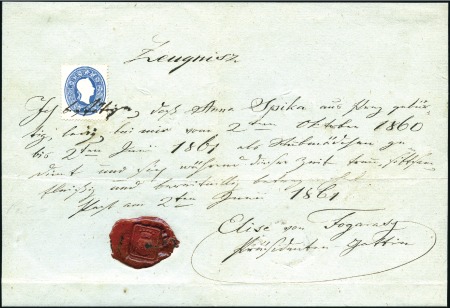 Zeugnisz.
Ich bestättige, dasz Anna Spika aus Prag gebür-
tig ledig, bei mir vom 2ten Oktober 1860
bis 2ten Juni 1861 als Stubmädchen ge-
dient und sich während dieser Zeit treu, sittsam
fleiszig und bereitwillig
Pest am 2ten Juni 1861
Elise von Fogarasy
Präsidenten-Gattin